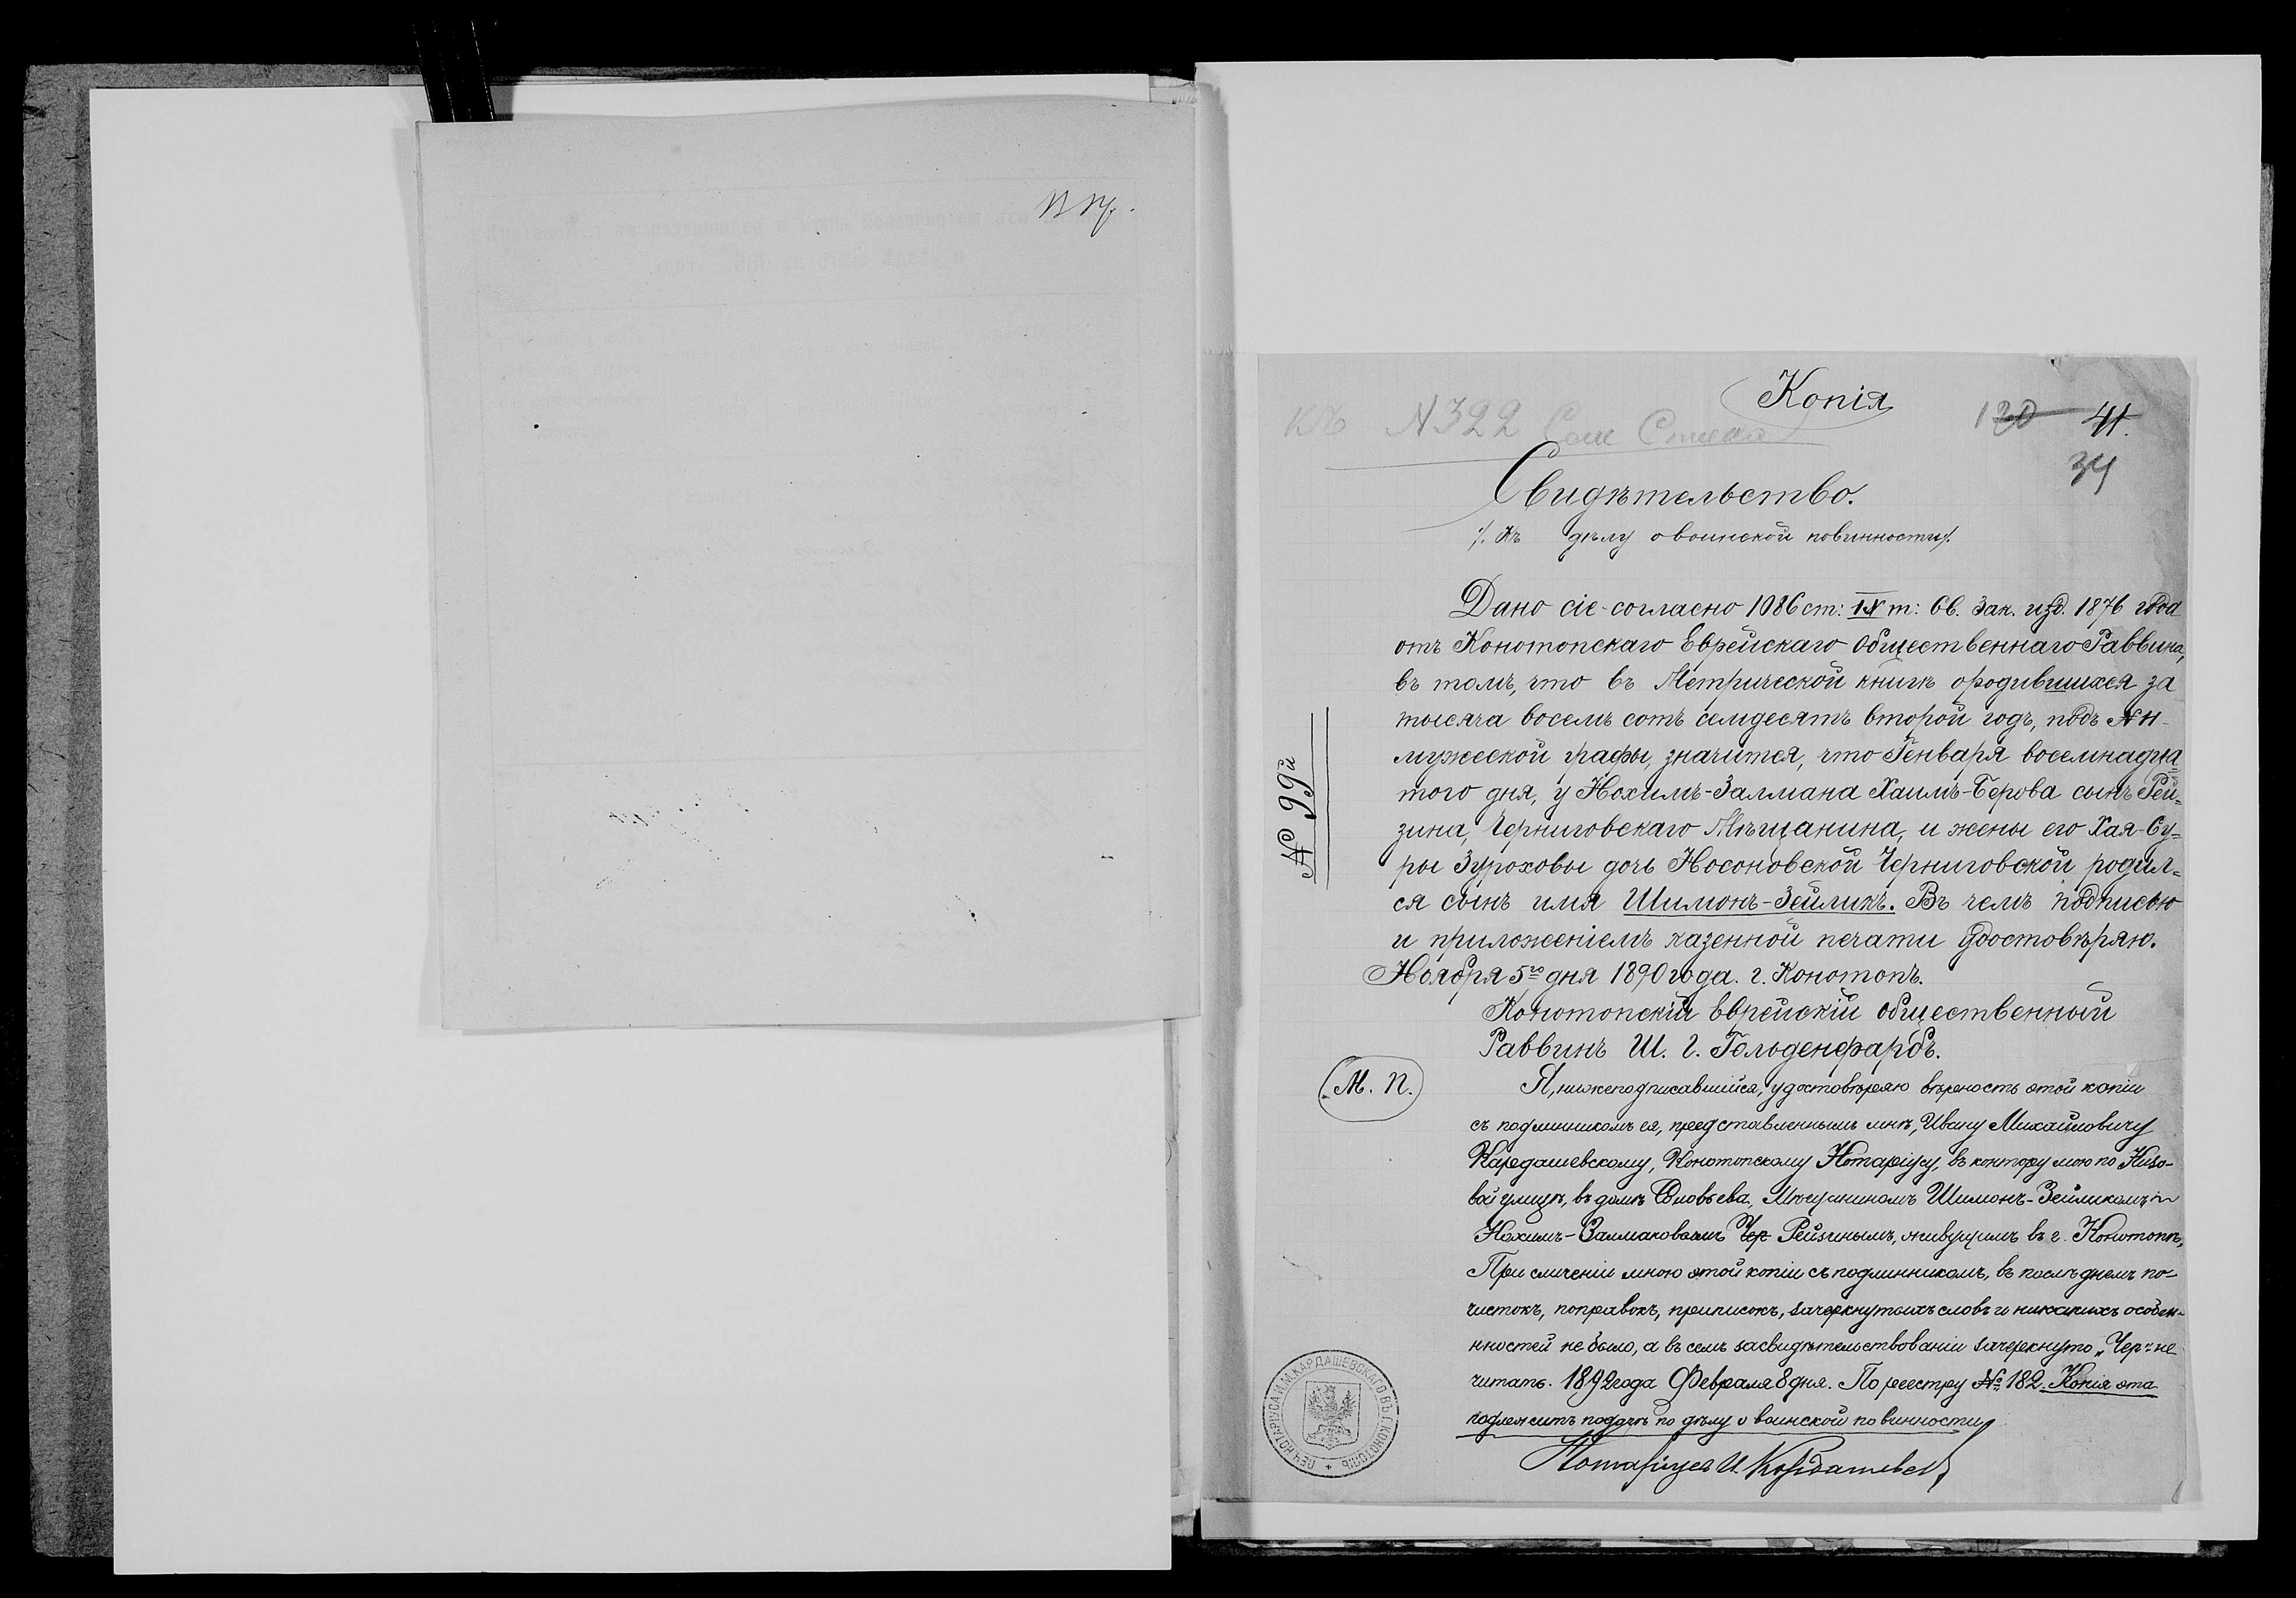 Копія
къ N 322
120 41.
34
Свидѣтельство.
/. Къ дѣлу о воинской повинности /.
Дано сіе согласно 1086 ст: IX т: Св. Зак. изд. 1876 года
отъ Конотопскаго Еврейскаго Общественнаго Раввина,
въ томъ, что въ Метрической книгѣ о родившихся за
тысяча восемь сотъ семдесятъ второй годъ, подъ №
мужеской графы, значится, что Генваря восемнадца=
того дня, у Нохимъ-Залмана Хаимъ-Берова сынъ Рей=
зина, Черниговскаго Мѣщанина, и жены его Хая-Су=
ры Зуроховы дочь Носоновской Черниговской родил=
ся сынъ имя Шимонъ-Зейликъ. Въ чемъ подписью
и приложеніемъ казенной печати удостовѣряю.
Ноября 5го дня 1890 года. г. Конотопъ.
Конотопскій Еврейскій общественный
Раввинъ Ш. Г. Гольденфарбъ.
№ 99й
М. П.
Я, нижеподписавшійся, удостовѣряю вѣрность этой копіи
съ подлинникомъ ея, представленнымъ мнѣ, Ивану Михайловичу
Кардашевскому, Конотопскому Нотаріусу, въ контору мою по Низо-
вой улицѣ, въ домѣ Соловьева, Мѣщаниномъ Шимонъ-Зейликомъ
Нохимъ-Залмановымъ Чер Рейзинымъ, живущимъ въ г. Конотопѣ,
При сличеніи мною этой копіи съ подлинникомъ, въ послѣднемъ по-
чистокъ, поправокъ, приписокъ, зачеркнутыхъ словъ и никакихъ особен-
ностей не было, а въ семъ засвидѣтельствованіи зачеркнуто „Чер" не
читать. 1892 года Февраля 8 дня. По реестру № 182. Копія эта
подлежитъ подачѣ по дѣлу о воинской повинности
Нотаріусъ И. Кардашевскій
ПЕЧ. НОТАРІУСА И. М. КАРДАШЕВСКАГО ВЪ Г. КОНОТОПѢ